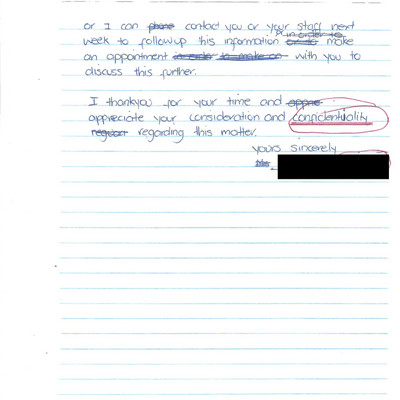 or I can phone contact you or your staff next
in order to
week to followup this information make
an appointment in order to make an with you to
discuss this further.
I thankyou for your time and
appreciate your consideration and confidentiality
regarding this matter.
yours sincerely